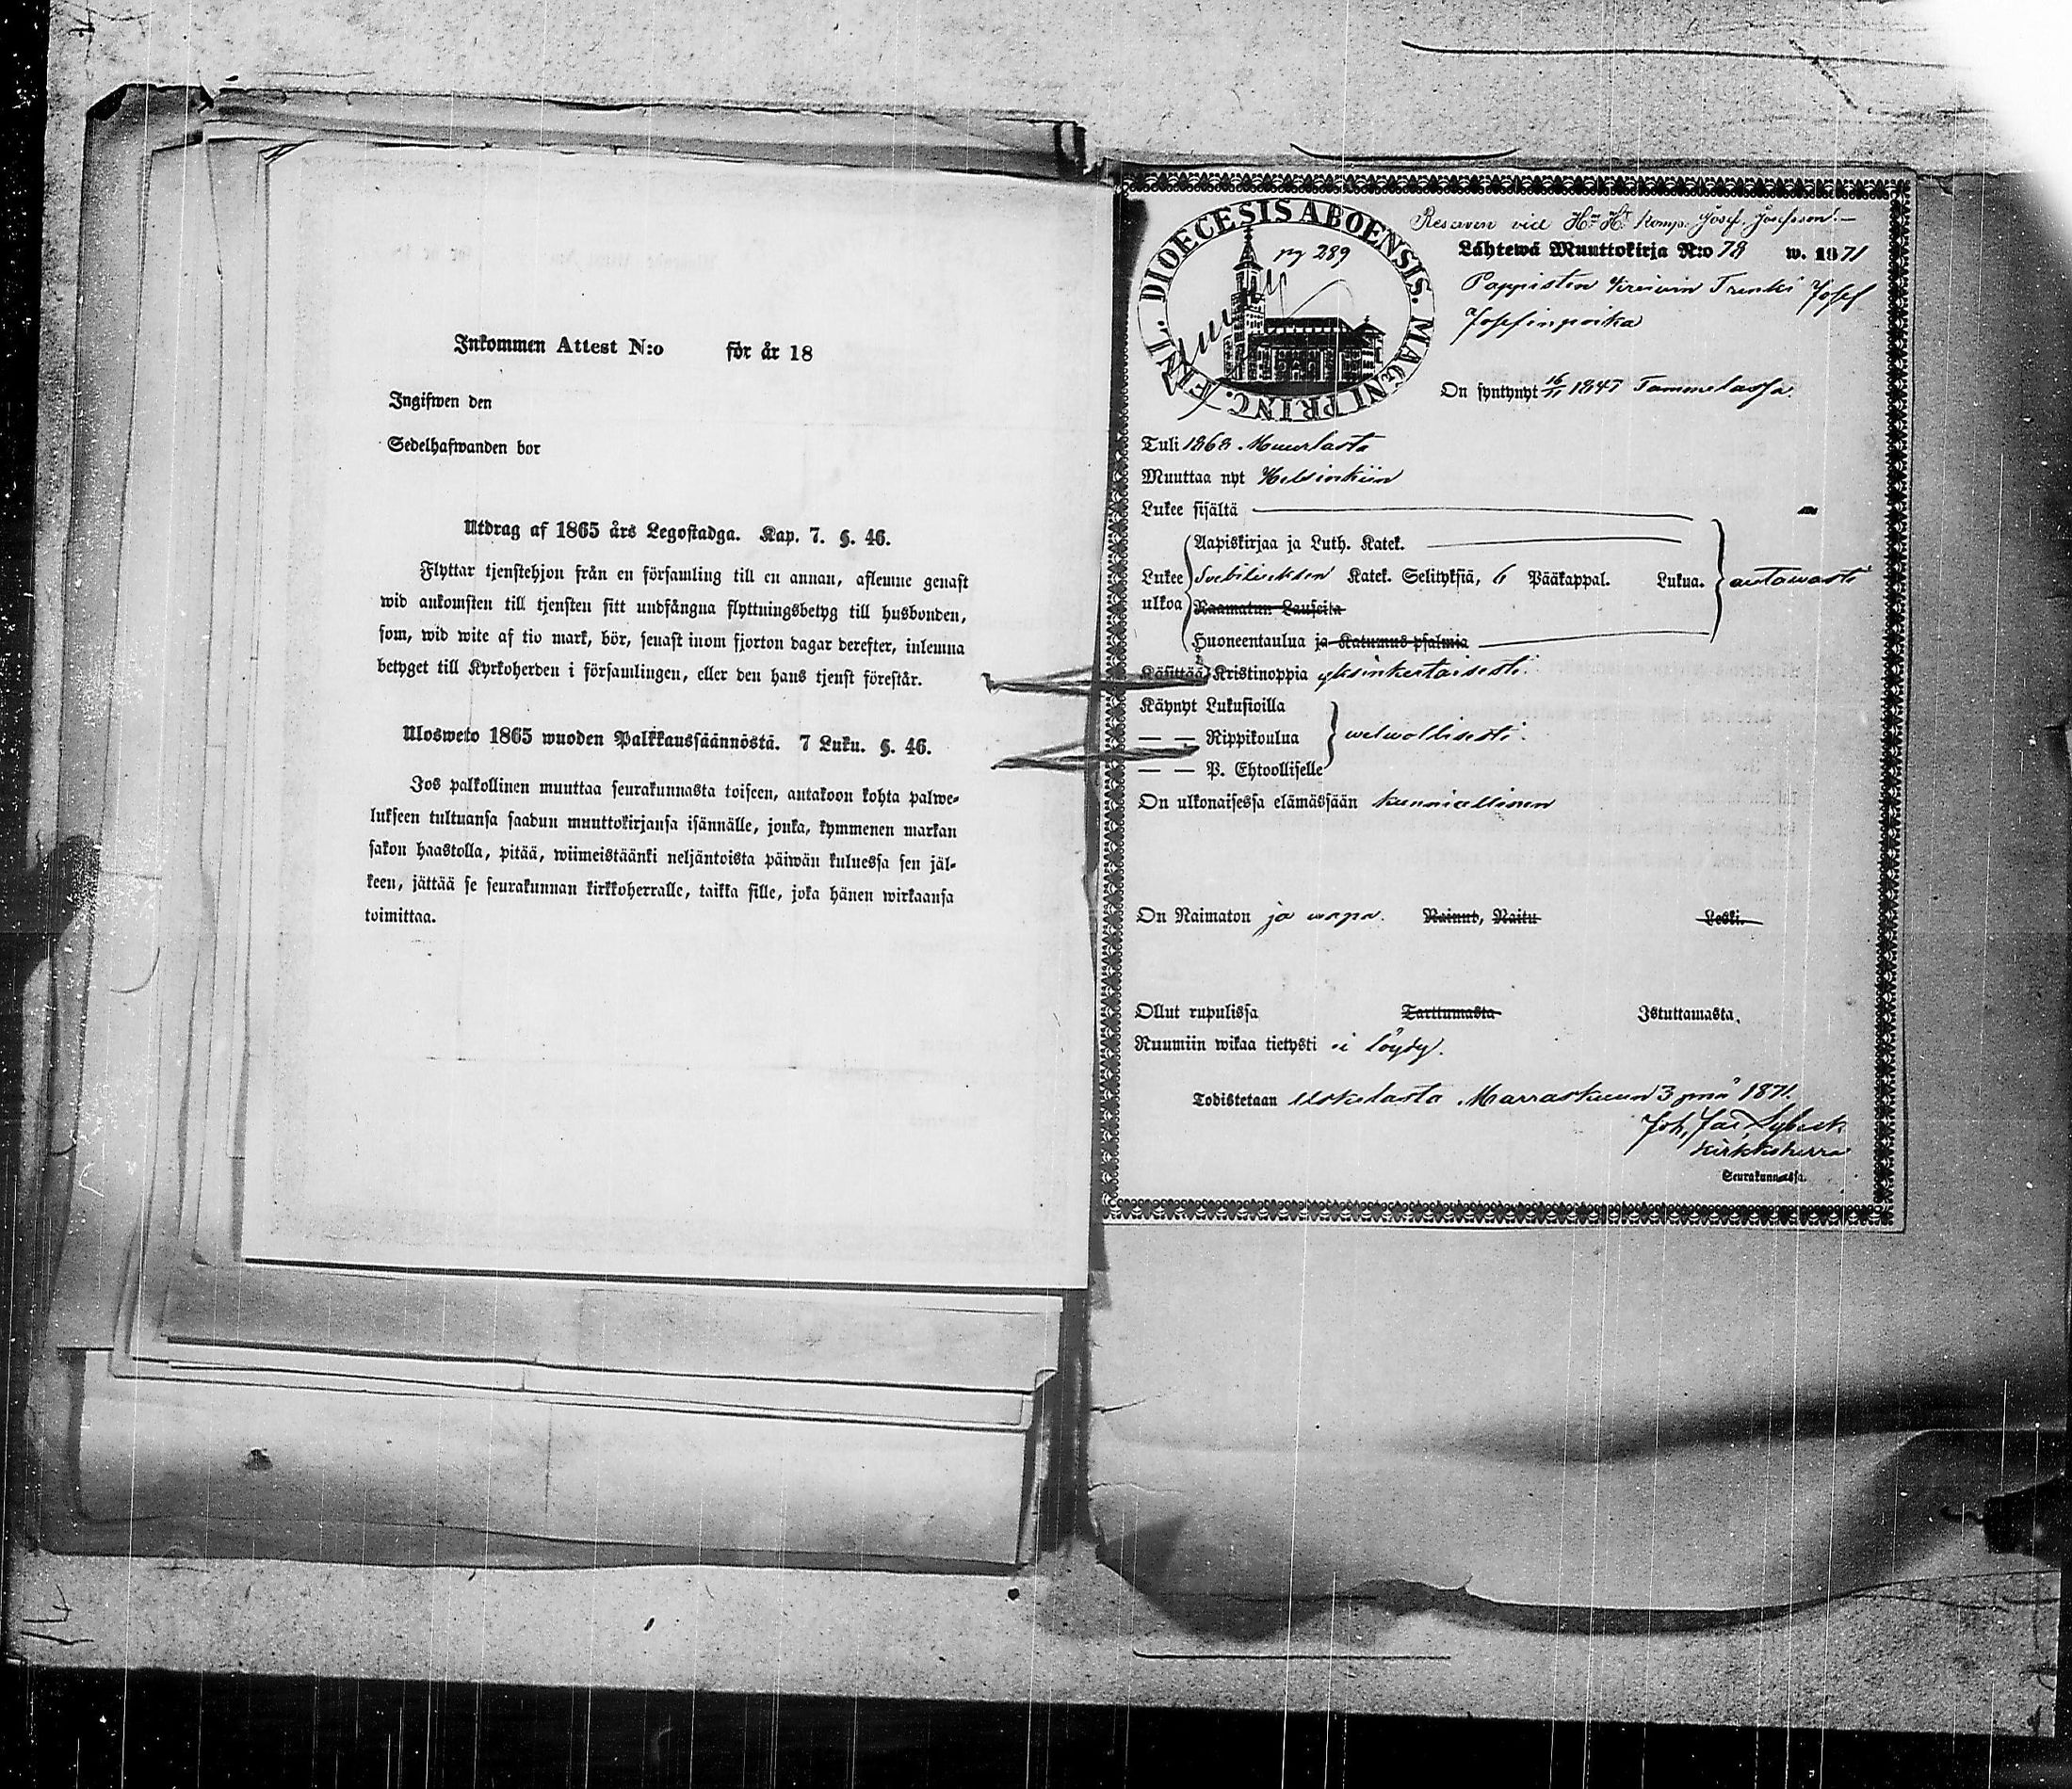 Inkommen Attest N:o för år 18
Ingifwen den
Sedelhafwanden bor
Utdrag af 1865 års Legostadga. Kap. 7. §. 46.
Flyttar tjenstehjon från en församling till en annan, aflemne genast
wid ankomsten till tjensten sitt undfångna flyttningsbetyg till husbonden,
som, wid wite af tio mark, bör, senast inom fjorton dagar derefter, inlemna
betyget till Kyrkoherden i församlingen, eller den hans tjenst förestår.
Ulosweto 1865 wuoden Palkkaussäännöstä. 7 Luku. §. 46.
Jos palkollinen muuttaa seurakunnasta toiseen, antakoon kohta palwe-
lukseen tultuansa saadun muuttokirjansa isännälle, jonka, kymmenen markan
sakon haastolla, pitää, wiimeistäänki neljäntoista päiwän kuluessa sen jäl-
keen, jättää se seurakunnan kirkkoherralle, taikka sille, joka hänen wirkaansa
toimittaa.
DIOECESIS ABOENSIS. MAGNI PRINC. FENL.
pg 289
vid Komp. Josef Josefsson
Lähtewä Muuttokirja N:o 78 w. 1871
Pappisten Trenki Josef
Josefinpoika
On syntynyt 16/11 1847 Tammelassa.
Tuli 1868 Muurlasta
Muuttaa nyt Helsinkiin
Lukee sisältä
Aapiskirjaa ja Luth. Katek.
Lukee Svebiliuksen Katek. Selityksiä, 6 Pääkappal. Lukua. autawasti
ulkoa Raamatun Lauseita
Huoneentaulua ja Katumus psalmia
Käsittää Kristinoppia yksinkertaisesti.
Käynyt Lukusioilla
— — Rippikoulua welwollisesti.
— — P. Ehtoolliselle
On ulkonaisessa elämässään kunniallinen
On Naimaton ja wapa. Nainut, Naitu Leski.
Ollut rupulissa Tarttumasta Istuttamasta.
Ruumiin wikaa tietysti ei löydy.
Todistetaan Uskelasta Marraskuun 3 pnä 1871.
Joh. Jac. Lybeck
kirkkoherra
Seurakunnassa.